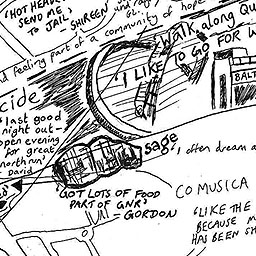 'HOT HEAD
SEND ME
TO JAIL' - SHIREEN
and feeling part of a community of hope
Walk along Qu
'I LIKE TO GO FOR W
BALT
cide
last good
night out -
open evening
for great
north run'
David
sage
I often dream a
'GOT LOTS OF FOOD
PART OF GNR'
- GORDON
CO MUSICA
'LIKE THE
BECAUSE M
HAS BEEN SH